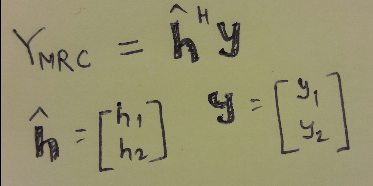 Y_MRC = ĥ^H y
ĥ = [h₁ h₂] y = [y₁ y₂]